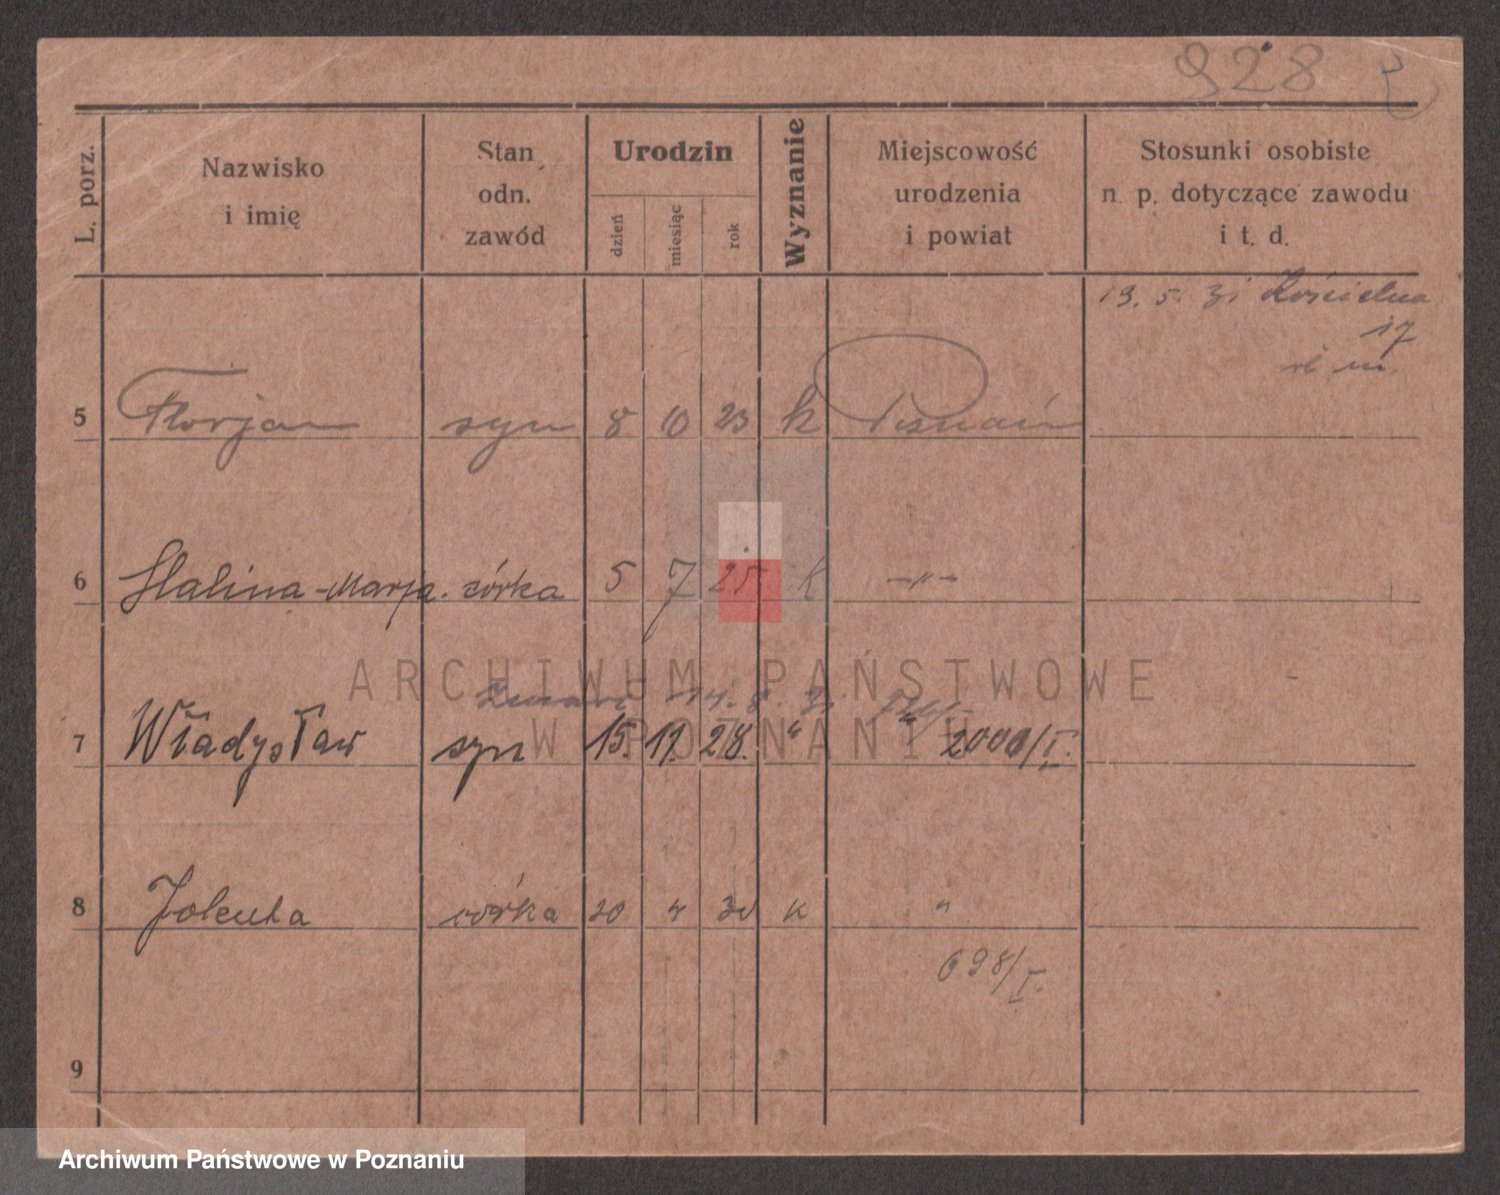 928
L. porz.
Nazwisko
i imię
Stan
odn.
zawód
Urodzin
dzień
miesiąc
rok
Wyznanie
Miejscowość
urodzenia
i powiat
Stosunki osobiste
n. p. dotyczące zawodu
i t. d.
19. 5. 31 Kościelna
17
5 Florjan syn 8 10 23 k Poznań
6 Halina-Marja. córka 5 7 25. k -"-
ARCHIWUM PAŃSTWOWE
W POZNANIU
Zmarł 14. 8. 31
7 Władysław syn 15. 11. 28. " " 2000/I.
8 Jolenta córka 20 4 30 k "
698/I.
9
Archiwum Państwowe w Poznaniu